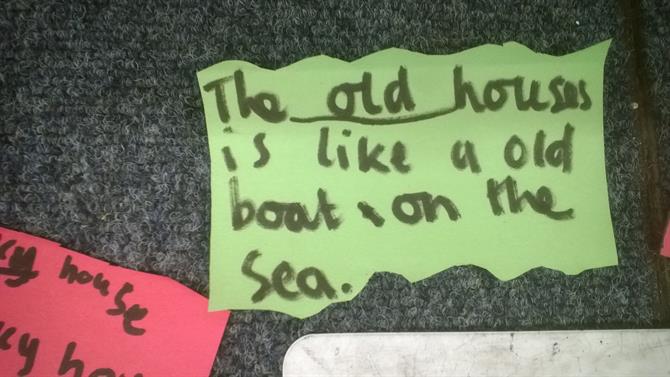 The old houses
is like a old
boat on the
sea.
house